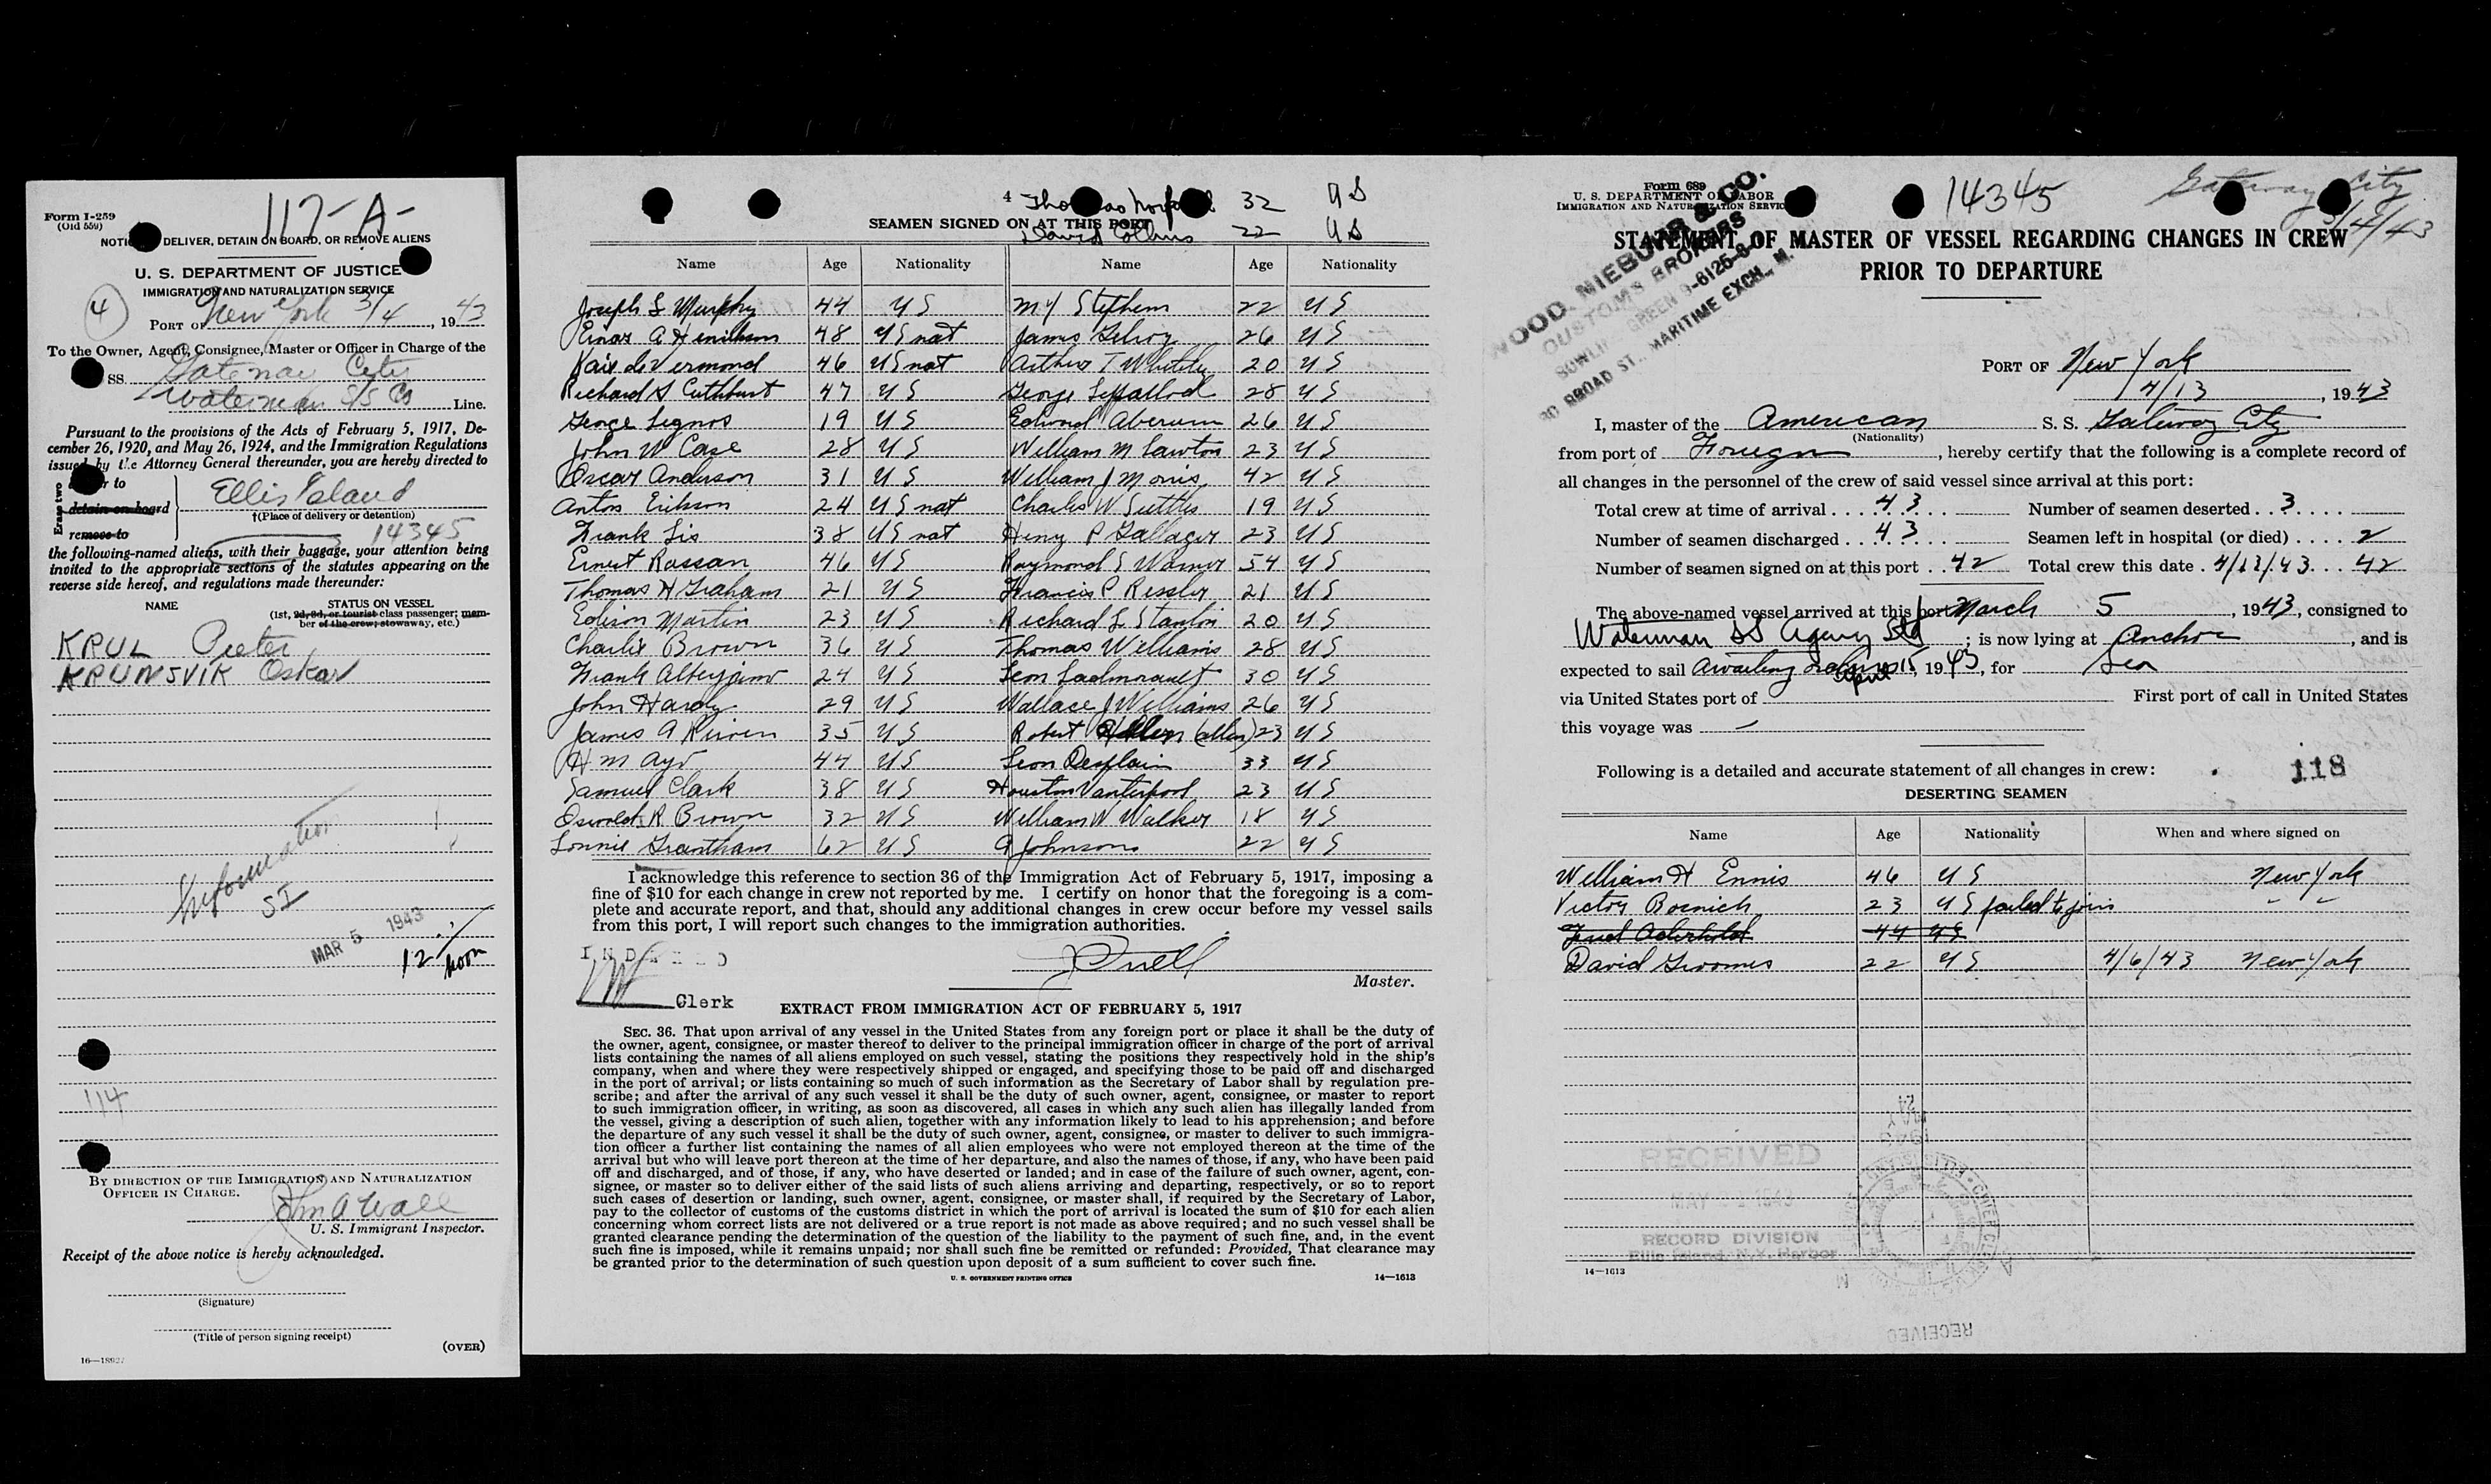 117-A-
Form I-259
(Old 559)
DELIVER, DETAIN ON BOARD, OR REMOVE ALIENS
U. S. DEPARTMENT OF JUSTICE
IMMIGRATION AND NATURALIZATION SERVICE
4
PORT OF New York 3/4, 1943
To the Owner, Agent, Consignee, Master or Officer in Charge of the
SS. Gateway City
Waterman S/S Co Line.
Pursuant to the provisions of the Acts of February 5, 1917, De-
cember 26, 1920, and May 26, 1924, and the Immigration Regulations
issued by the Attorney General thereunder, you are hereby directed to
Erase two
to
detain on board
remove to
Ellis Island
†(Place of delivery or detention)
14345
the following-named aliens, with their baggage, your attention being
invited to the appropriate sections of the statutes appearing on the
reverse side hereof, and regulations made thereunder:
NAME STATUS ON VESSEL
(1st, 2d, 3d, or tourist class passenger; mem-
ber of the crew; stowaway, etc.)
KRUL Pieter
KRUNSVIK Oskar
Information
SI
MAR 5 1943
12 noon
114
BY DIRECTION OF THE IMMIGRATION AND NATURALIZATION
OFFICER IN CHARGE.
John A Wall
U. S. Immigrant Inspector.
Receipt of the above notice is hereby acknowledged.
(Signature)
(Title of person signing receipt)
(OVER)
4
Thomas 32 US
SEAMEN SIGNED ON AT THIS PORT
David Collins 22 US
Name Age Nationality Name Age Nationality
Joseph L Murphy 44 US M Y Stephens 22 US
Einar A Henrikson 48 US nat James Gilroy 26 US
de Vermond 46 US nat Arthur T Whitely 20 US
Richard S Cuthburt 47 US George 28 US
George Lignos 19 US Edward 26 US
John W Case 28 US William M Lawton 23 US
Oscar Anderson 31 US William J Morris 42 US
Anton Erikson 24 US nat Charles W Suttles 19 US
Frank Lis 38 US nat Henry P Gallager 23 US
Ernest Rassan 46 US Raymond S Warner 54 US
Thomas H Graham 21 US Francis P Ressler 21 US
Edison Martin 23 US Richard L Stanton 20 US
Charlie Brown 36 US Thomas Williams 28 US
Frank 24 US Leon 30 US
John Hardy 29 US Wallace J Williams 26 US
James A Kirven 35 US Robert Allen (allen) 23 US
H M Ayo 44 US Leon Desplain 33 US
Samuel Clark 38 US Houston Vanterpool 23 US
Oswald R Brown 32 US William W Walker 18 US
Lonnie Grantham 62 US A Johnson 22 US
I acknowledge this reference to section 36 of the Immigration Act of February 5, 1917, imposing a
fine of $10 for each change in crew not reported by me. I certify on honor that the foregoing is a com-
plete and accurate report, and that, should any additional changes in crew occur before my vessel sails
from this port, I will report such changes to the immigration authorities.
INDEXED
Clerk
Master.
EXTRACT FROM IMMIGRATION ACT OF FEBRUARY 5, 1917
SEC. 36. That upon arrival of any vessel in the United States from any foreign port or place it shall be the duty of
the owner, agent, consignee, or master thereof to deliver to the principal immigration officer in charge of the port of arrival
lists containing the names of all aliens employed on such vessel, stating the positions they respectively hold in the ship's
company, when and where they were respectively shipped or engaged, and specifying those to be paid off and discharged
in the port of arrival; or lists containing so much of such information as the Secretary of Labor shall by regulation pre-
scribe; and after the arrival of any such vessel it shall be the duty of such owner, agent, consignee, or master to report
to such immigration officer, in writing, as soon as discovered, all cases in which any such alien has illegally landed from
the vessel, giving a description of such alien, together with any information likely to lead to his apprehension; and before
the departure of any such vessel it shall be the duty of such owner, agent, consignee, or master to deliver to such immigra-
tion officer a further list containing the names of all alien employees who were not employed thereon at the time of the
arrival but who will leave port thereon at the time of her departure, and also the names of those, if any, who have been paid
off and discharged, and of those, if any, who have deserted or landed; and in case of the failure of such owner, agent, con-
signee, or master so to deliver either of the said lists of such aliens arriving and departing, respectively, or so to report
such cases of desertion or landing, such owner, agent, consignee, or master shall, if required by the Secretary of Labor,
pay to the collector of customs of the customs district in which the port of arrival is located the sum of $10 for each alien
concerning whom correct lists are not delivered or a true report is not made as above required; and no such vessel shall be
granted clearance pending the determination of the question of the liability to the payment of such fine, and, in the event
such fine is imposed, while it remains unpaid; nor shall such fine be remitted or refunded: Provided, That clearance may
be granted prior to the determination of such question upon deposit of a sum sufficient to cover such fine.
U. S. GOVERNMENT PRINTING OFFICE 14—1613
Form 689
U. S. DEPARTMENT OF LABOR
IMMIGRATION AND NATURALIZATION SERVICE
14345
Gateway City
3/4/43
WOOD, NIEBUHR & CO.
CUSTOMS BROKERS
BOWLING GREEN 9-6125-6-7
BROAD ST., MARITIME EXCH., N.
STATEMENT OF MASTER OF VESSEL REGARDING CHANGES IN CREW
PRIOR TO DEPARTURE
PORT OF New York
4/13, 1943
I, master of the American S. S. Gateway City
(Nationality)
from port of Foreign, hereby certify that the following is a complete record of
all changes in the personnel of the crew of said vessel since arrival at this port:
Total crew at time of arrival . . . 43 Number of seamen deserted . . 3 . . . .
Number of seamen discharged . . 43 . . . Seamen left in hospital (or died) . . . . 2
Number of seamen signed on at this port . . 42 Total crew this date . 4/13/43 . . . 42
The above-named vessel arrived at this port March 5, 1943, consigned to
Waterman SS Agency Ltd; is now lying at Anchor, and is
expected to sail Awaiting Orders April 15, 1943, for Sea
via United States port of First port of call in United States
this voyage was —
Following is a detailed and accurate statement of all changes in crew:
118
DESERTING SEAMEN
Name Age Nationality When and where signed on
William H Ennis 46 US New York
Victor Bosnich 23 US failed to join " "
44 US
David Groomes 22 US 4/6/43 New York
RECEIVED
MAY 1943
RECORD DIVISION
Ellis Island, N.Y. Harbor
14—1613
RECEIVED